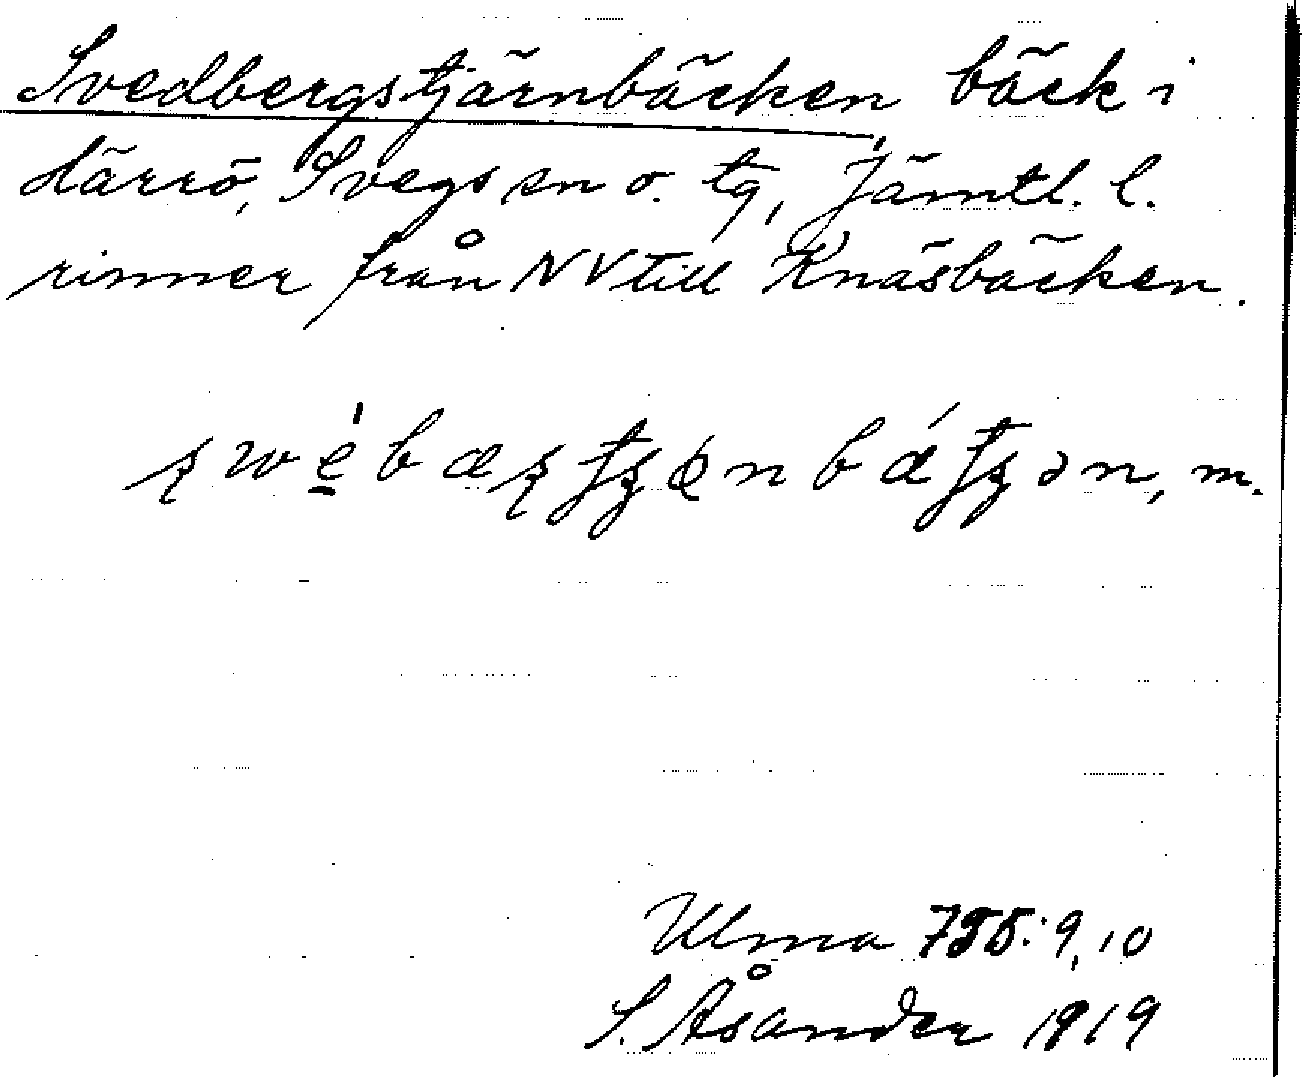 Svedbergstjärnbäcken bäck i
därrö, Svegs sn o. tg, Jämtl. l.
rinner från NV till Knäsbäcken.
m.
Ulma 755: 9, 10
S. Åsander 1919